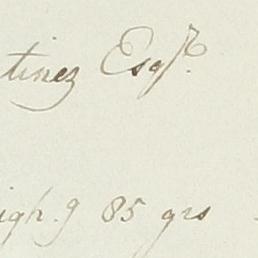 tinez Esqr.
igh.g 85 grs